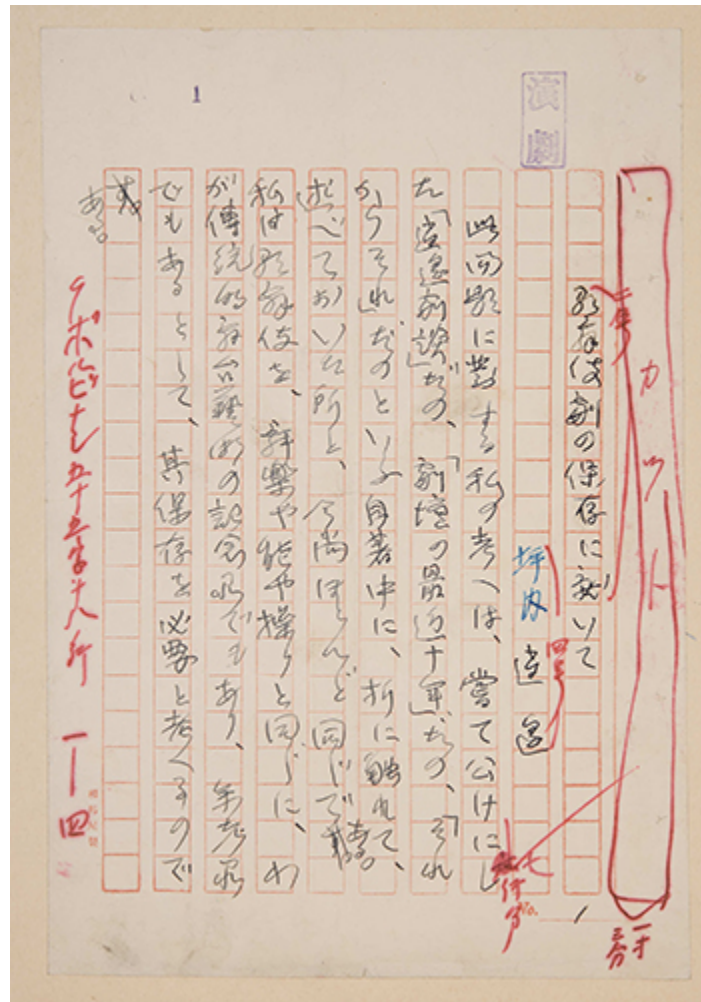 演劇
1
カット
一寸三分
二号
歌舞伎劇の保存に就いて
四号
坪内逍遙
此問題に對する私の考へは、嘗て公けにし
た「逍遙劇談」だの、「劇壇の最近十年」だの、「それ
からそれ」だのといふ自著中に、折に触れて、
述べておいた所と、今尚ほとんど同じである。
私は歌舞伎を、舞樂や能や操りと同じに、わ
が傳統的舞台藝術の記念品でもあり、
でもあるとして、其保存を必要と考へるので
ある。
九ポ 五十五字十八行 一ー四
No. 1